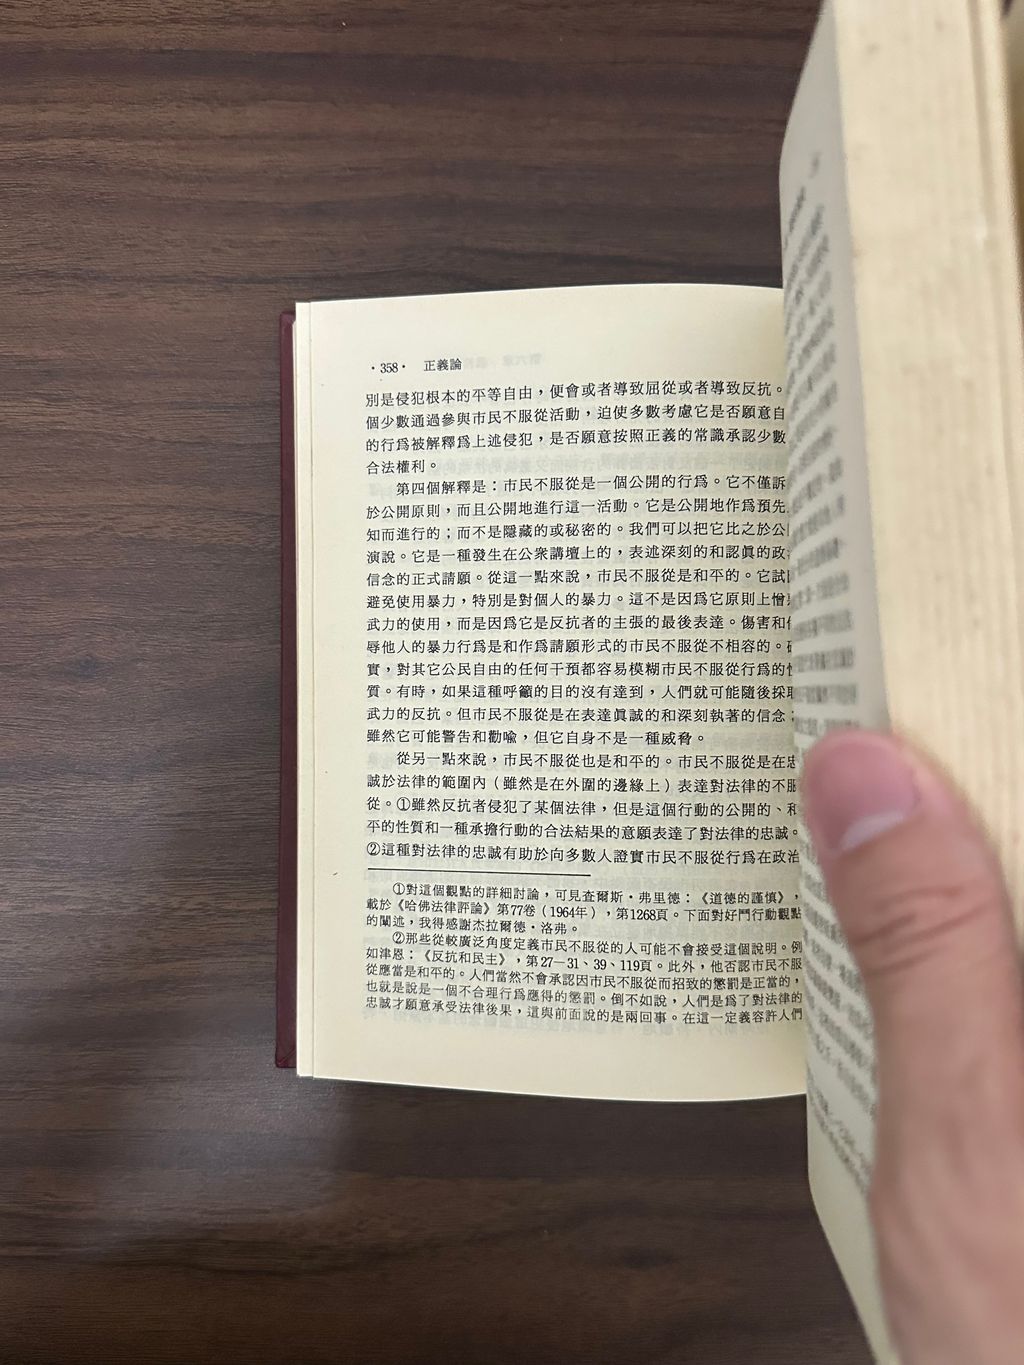 ·358· 正義論
別是侵犯根本的平等自由，便會或者導致屈從或者導致反抗。
個少數通過參與市民不服從活動，迫使多數考慮它是否願意自
的行爲被解釋爲上述侵犯，是否願意按照正義的常識承認少數
合法權利。
第四個解釋是：市民不服從是一個公開的行爲。它不僅訴
於公開原則，而且公開地進行這一活動。它是公開地作爲預先
知而進行的；而不是隱藏的或秘密的。我們可以把它比之於公
演說。它是一種發生在公衆講壇上的，表述深刻的和認眞的政治
信念的正式請願。從這一點來說，市民不服從是和平的。它試
避免使用暴力，特別是對個人的暴力。這不是因爲它原則上憎
武力的使用，而是因爲它是反抗者的主張的最後表達。傷害和
辱他人的暴力行爲是和作爲請願形式的市民不服從不相容的。
實，對其它公民自由的任何干預都容易模糊市民不服從行爲的性
質。有時，如果這種呼籲的目的沒有達到，人們就可能隨後採取
武力的反抗。但市民不服從是在表達眞誠的和深刻執著的信念；
雖然它可能警告和勸喩，但它自身不是一種威脅。
從另一點來說，市民不服從也是和平的。市民不服從是在忠
誠於法律的範圍內（雖然是在外圍的邊緣上）表達對法律的不服
從。①雖然反抗者侵犯了某個法律，但是這個行動的公開的、和
平的性質和一種承擔行動的合法結果的意願表達了對法律的忠誠。
②這種對法律的忠誠有助於向多數人證實市民不服從行爲在政治
①對這個觀點的詳細討論，可見查爾斯·弗里德：《道德的謹慎》，
載於《哈佛法律評論》第77卷（1964年），第1268頁。下面對好鬥行動觀點
的闡述，我得感謝杰拉爾德·洛弗。
②那些從較廣泛角度定義市民不服從的人可能不會接受這個說明。例
如津恩：《反抗和民主》，第27—31、39、119頁。此外，他否認市民不服
從應當是和平的。人們當然不會承認因市民不服從而招致的懲罰是正當的，
也就是說是一個不合理行爲應得的懲罰。倒不如說，人們是爲了對法律的
忠誠才願意承受法律後果，這與前面說的是兩回事。在這一定義容許人們